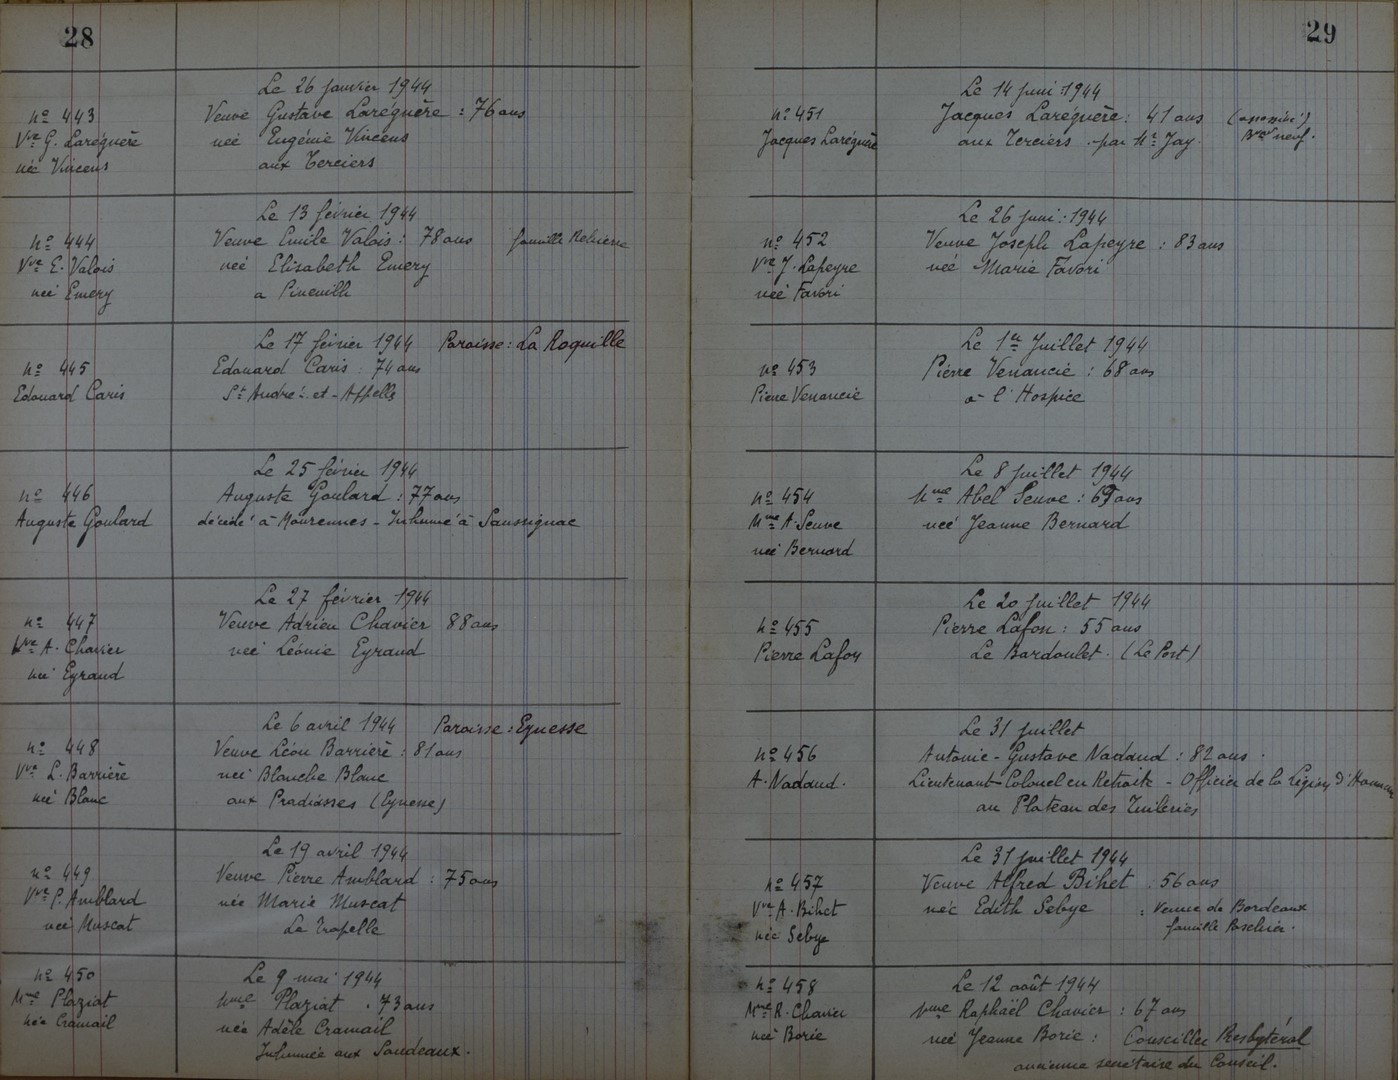 28
Le 26 janvier 1944
nº 443
Veuve Gustave Laréguère : 76 ans
Vve G. Laréguère
née Eugénie Vincens
née Vincens
aux Terciers
Le 13 février 1944
nº 444
Veuve Emile Valois : 78 ans famille
Vve E. Valois
née Elisabeth Emery
née Emery
a Pineuilh
Le 17 février 1944 Paroisse : La Roquille
nº 445
Edouard Caris : 74 ans
Edouard Caris
St André - et - Appelle
Le 25 février 1944
nº 446
Auguste Goulard : 77 ans
Auguste Goulard
décédé à Mourennes - Inhumé à Saussignac
Le 27 février 1944
nº 447
Veuve Adrien Chavier 88 ans
Vve A. Chavier
née Léonie Eyraud
née Eyraud
Le 6 avril 1944 Paroisse : Eynesse
nº 448
Veuve Léon Barrière : 81 ans
Vve L. Barrière
née Blanche Blanc
née Blanc
aux Pradiasses (Eynesse)
Le 19 avril 1944
nº 449
Veuve Pierre Amblard : 75 ans
Vve P. Amblard
née Marie Muscat
née Muscat
La Trapelle
nº 450
Le 9 mai 1944
Mme Plaziat
Mme Plaziat . 73 ans
née Cramail
née Adèle Cramail
Inhumée aux Sandeaux.
29
Le 14 juin 1944
nº 451
Jacques Laréguère : 41 ans
Jacques Laréguère
aux Terciers . par Mr Jay
Le 26 juin 1944
nº 452
Veuve Joseph Lapeyre : 83 ans
Vve J. Lapeyre
née Marie Favori
née Favori
Le 1er Juillet 1944
nº 453
Pierre Venancie : 68 ans
Pierre Venancie
a l'Hospice
Le 8 juillet 1944
nº 454
Mme Abel Seuve : ans
Mme A. Seuve
née Jeanne Bernard
née Bernard
Le 20 juillet 1944
nº 455
Pierre Lafon : 55 ans
Pierre Lafon
Le Bardoulet . (Le Port)
Le 31 juillet
nº 456
Antonie - Gustave Nadaud : 82 ans .
A. Nadaud.
Lieutenant-Colonel en Retraite - Officier de la Légion d'Honneur
au Plateau des Tuileries
Le 31 juillet 1944
nº 457
Veuve Alfred Bihet : 56 ans
Vve A. Bihet
née Edith Sebye : Venue de Bordeaux
née Sebye
famille
Le 12 août 1944
nº 458
Mme R. Chavier
Mme Raphaël Chavier : 67 ans
née Borie
née Jeanne Borie : Conseiller Presbytéral
ancienne secrétaire du Conseil.